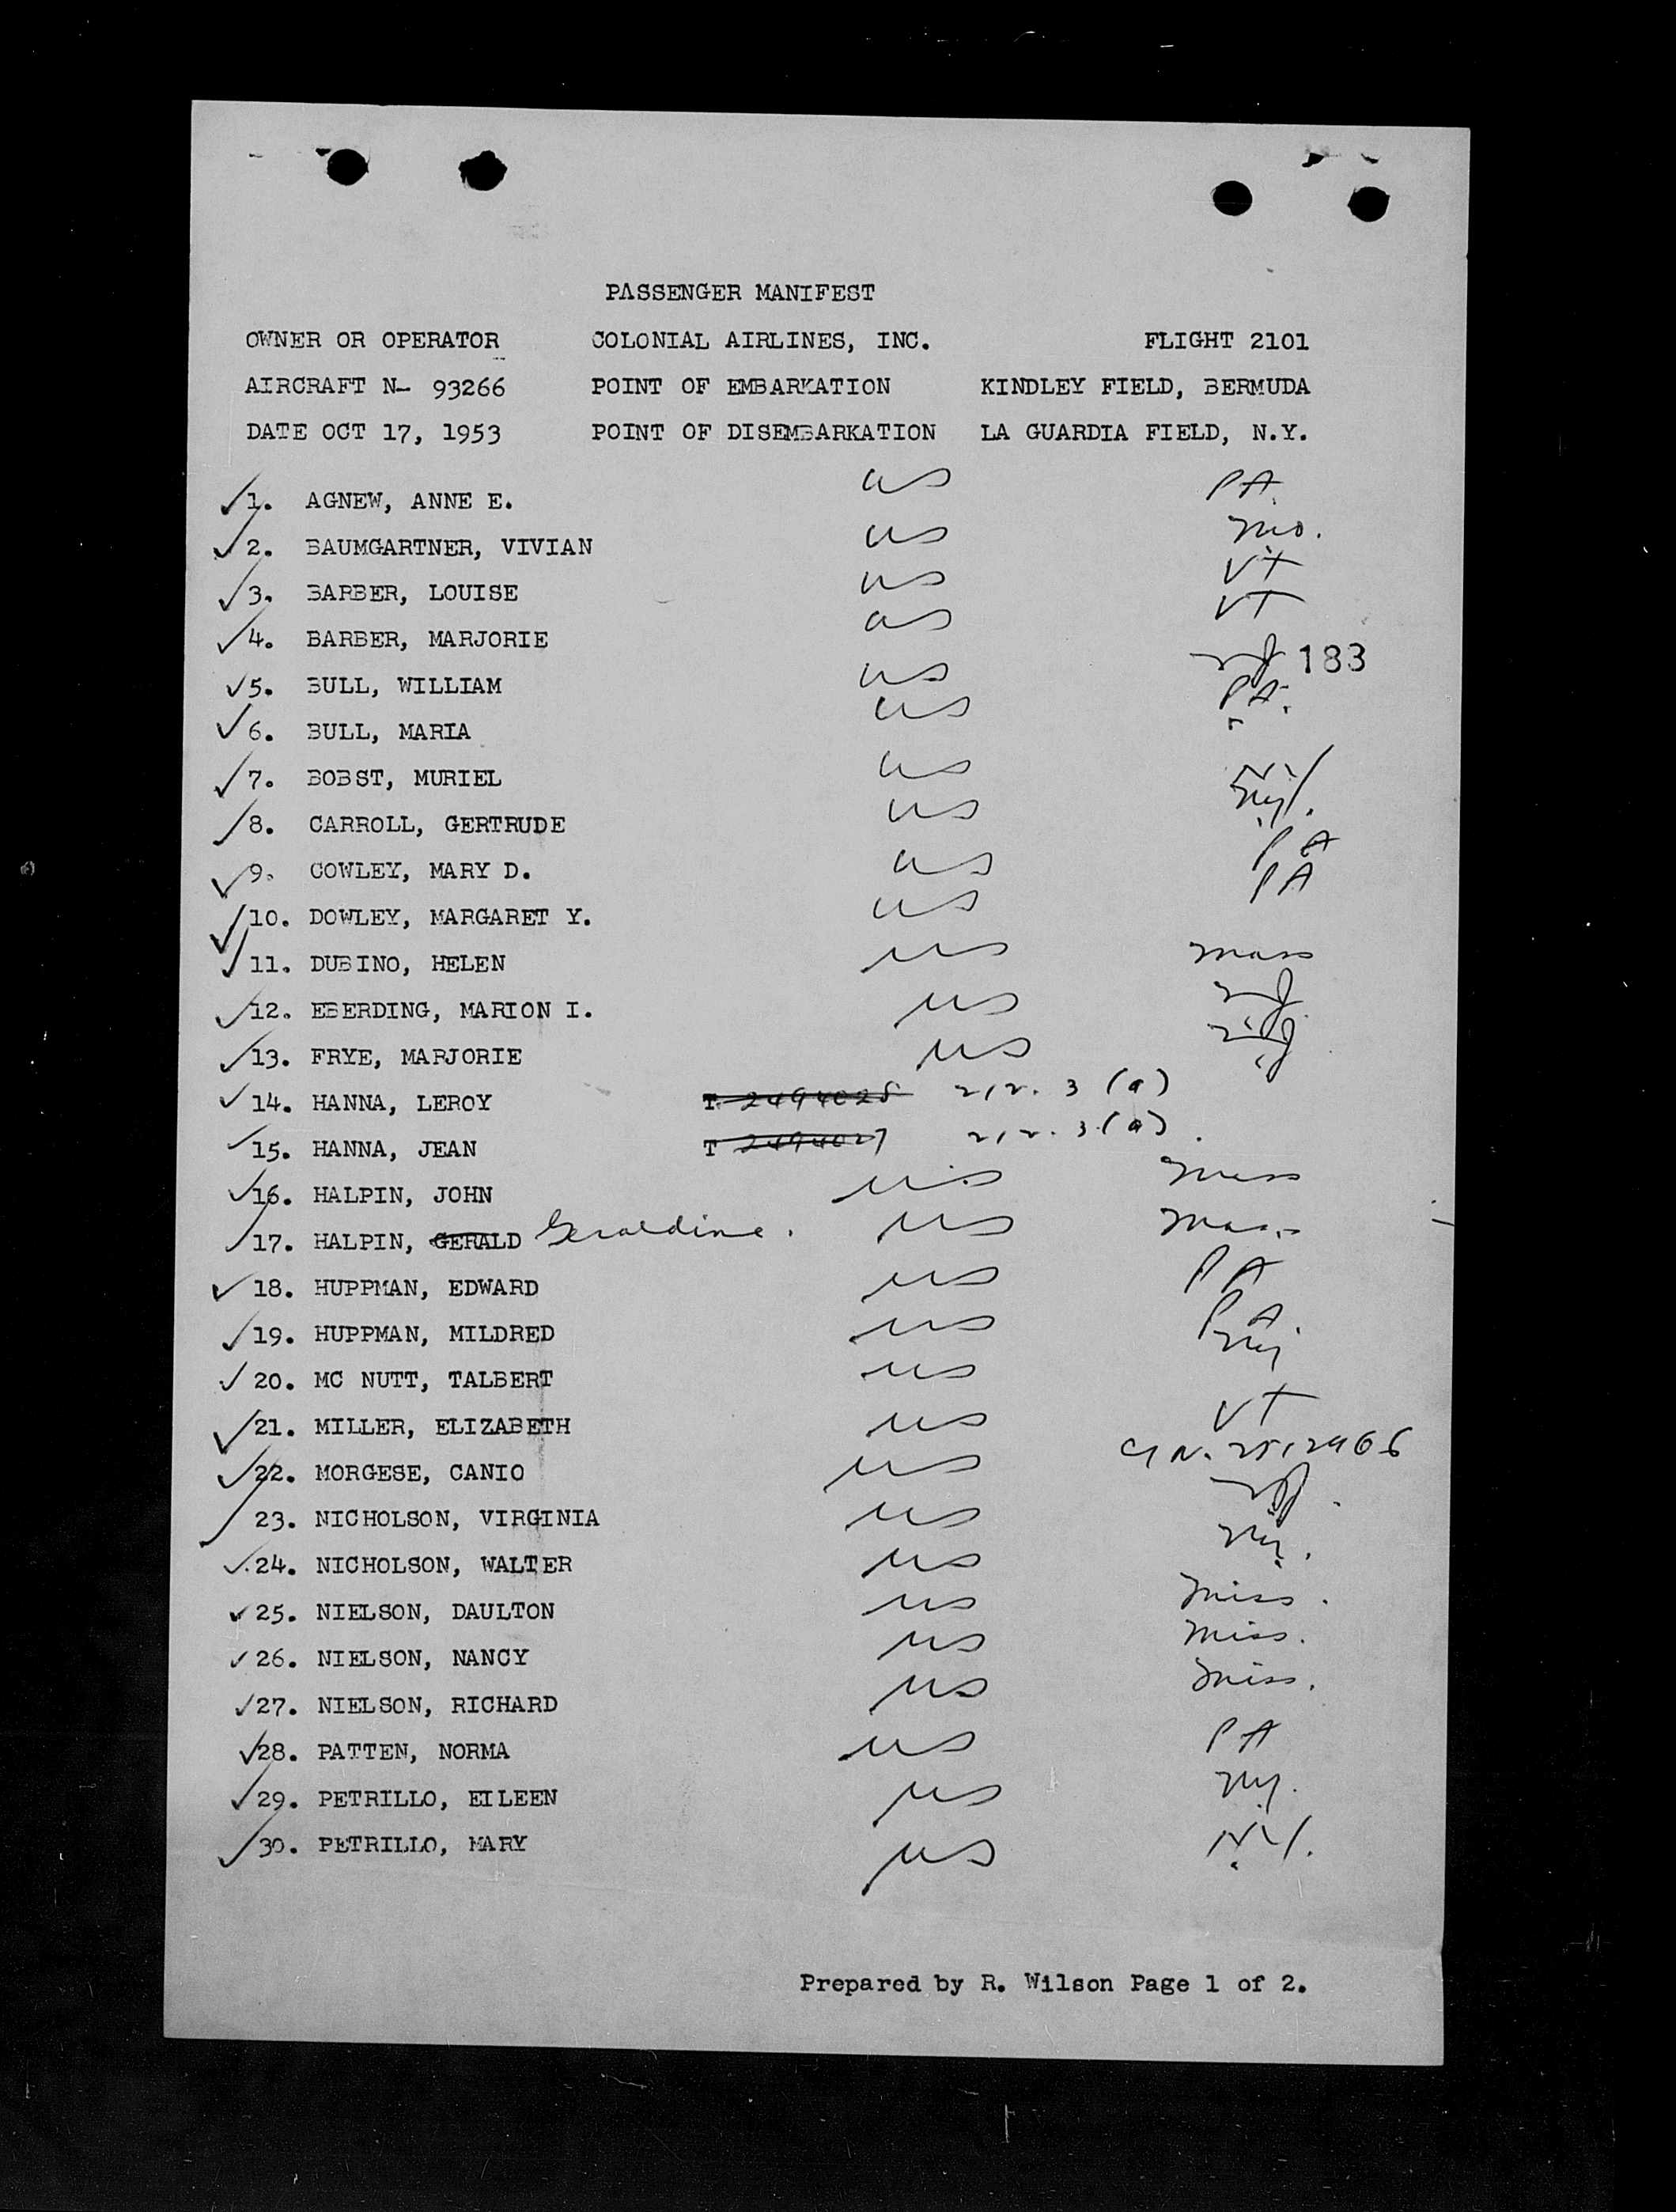 PASSENGER MANIFEST
OWNER OR OPERATOR COLONIAL AIRLINES, INC. FLIGHT 2101
AIRCRAFT N- 93266 POINT OF EMBARKATION KINDLEY FIELD, BERMUDA
DATE OCT 17, 1953 POINT OF DISEMBARKATION LA GUARDIA FIELD, N.Y.
✓ 1. AGNEW, ANNE E. US PA
✓ 2. BAUMGARTNER, VIVIAN US Mo.
✓ 3. BARBER, LOUISE US VT
✓ 4. BARBER, MARJORIE US VT
✓ 5. BULL, WILLIAM US NJ 183
✓ 6. BULL, MARIA US PA.
✓ 7. BOBST, MURIEL US
✓ 8. CARROLL, GERTRUDE US NY.
✓ 9. COWLEY, MARY D. US PA
✓ 10. DOWLEY, MARGARET Y. US PA
✓ 11. DUBINO, HELEN US Mass
✓ 12. EBERDING, MARION I. US NJ
✓ 13. FRYE, MARJORIE US NJ
✓ 14. HANNA, LEROY T 2494028 212.3 (a)
✓ 15. HANNA, JEAN T 2494027 212.3 (a)
✓ 16. HALPIN, JOHN US Mass
✓ 17. HALPIN, GERALD Geraldine. US Mass
✓ 18. HUPPMAN, EDWARD US PA
✓ 19. HUPPMAN, MILDRED US PA.
✓ 20. MC NUTT, TALBERT US NY
✓ 21. MILLER, ELIZABETH US VT
✓ 22. MORGESE, CANIO US
✓ 23. NICHOLSON, VIRGINIA US NJ.
✓ 24. NICHOLSON, WALTER US NY.
✓ 25. NIELSON, DAULTON US Miss.
✓ 26. NIELSON, NANCY US Miss.
✓ 27. NIELSON, RICHARD US Miss.
✓ 28. PATTEN, NORMA US PA
✓ 29. PETRILLO, EILEEN US NY.
✓ 30. PETRILLO, MARY US N.Y.
Prepared by R. Wilson Page 1 of 2.